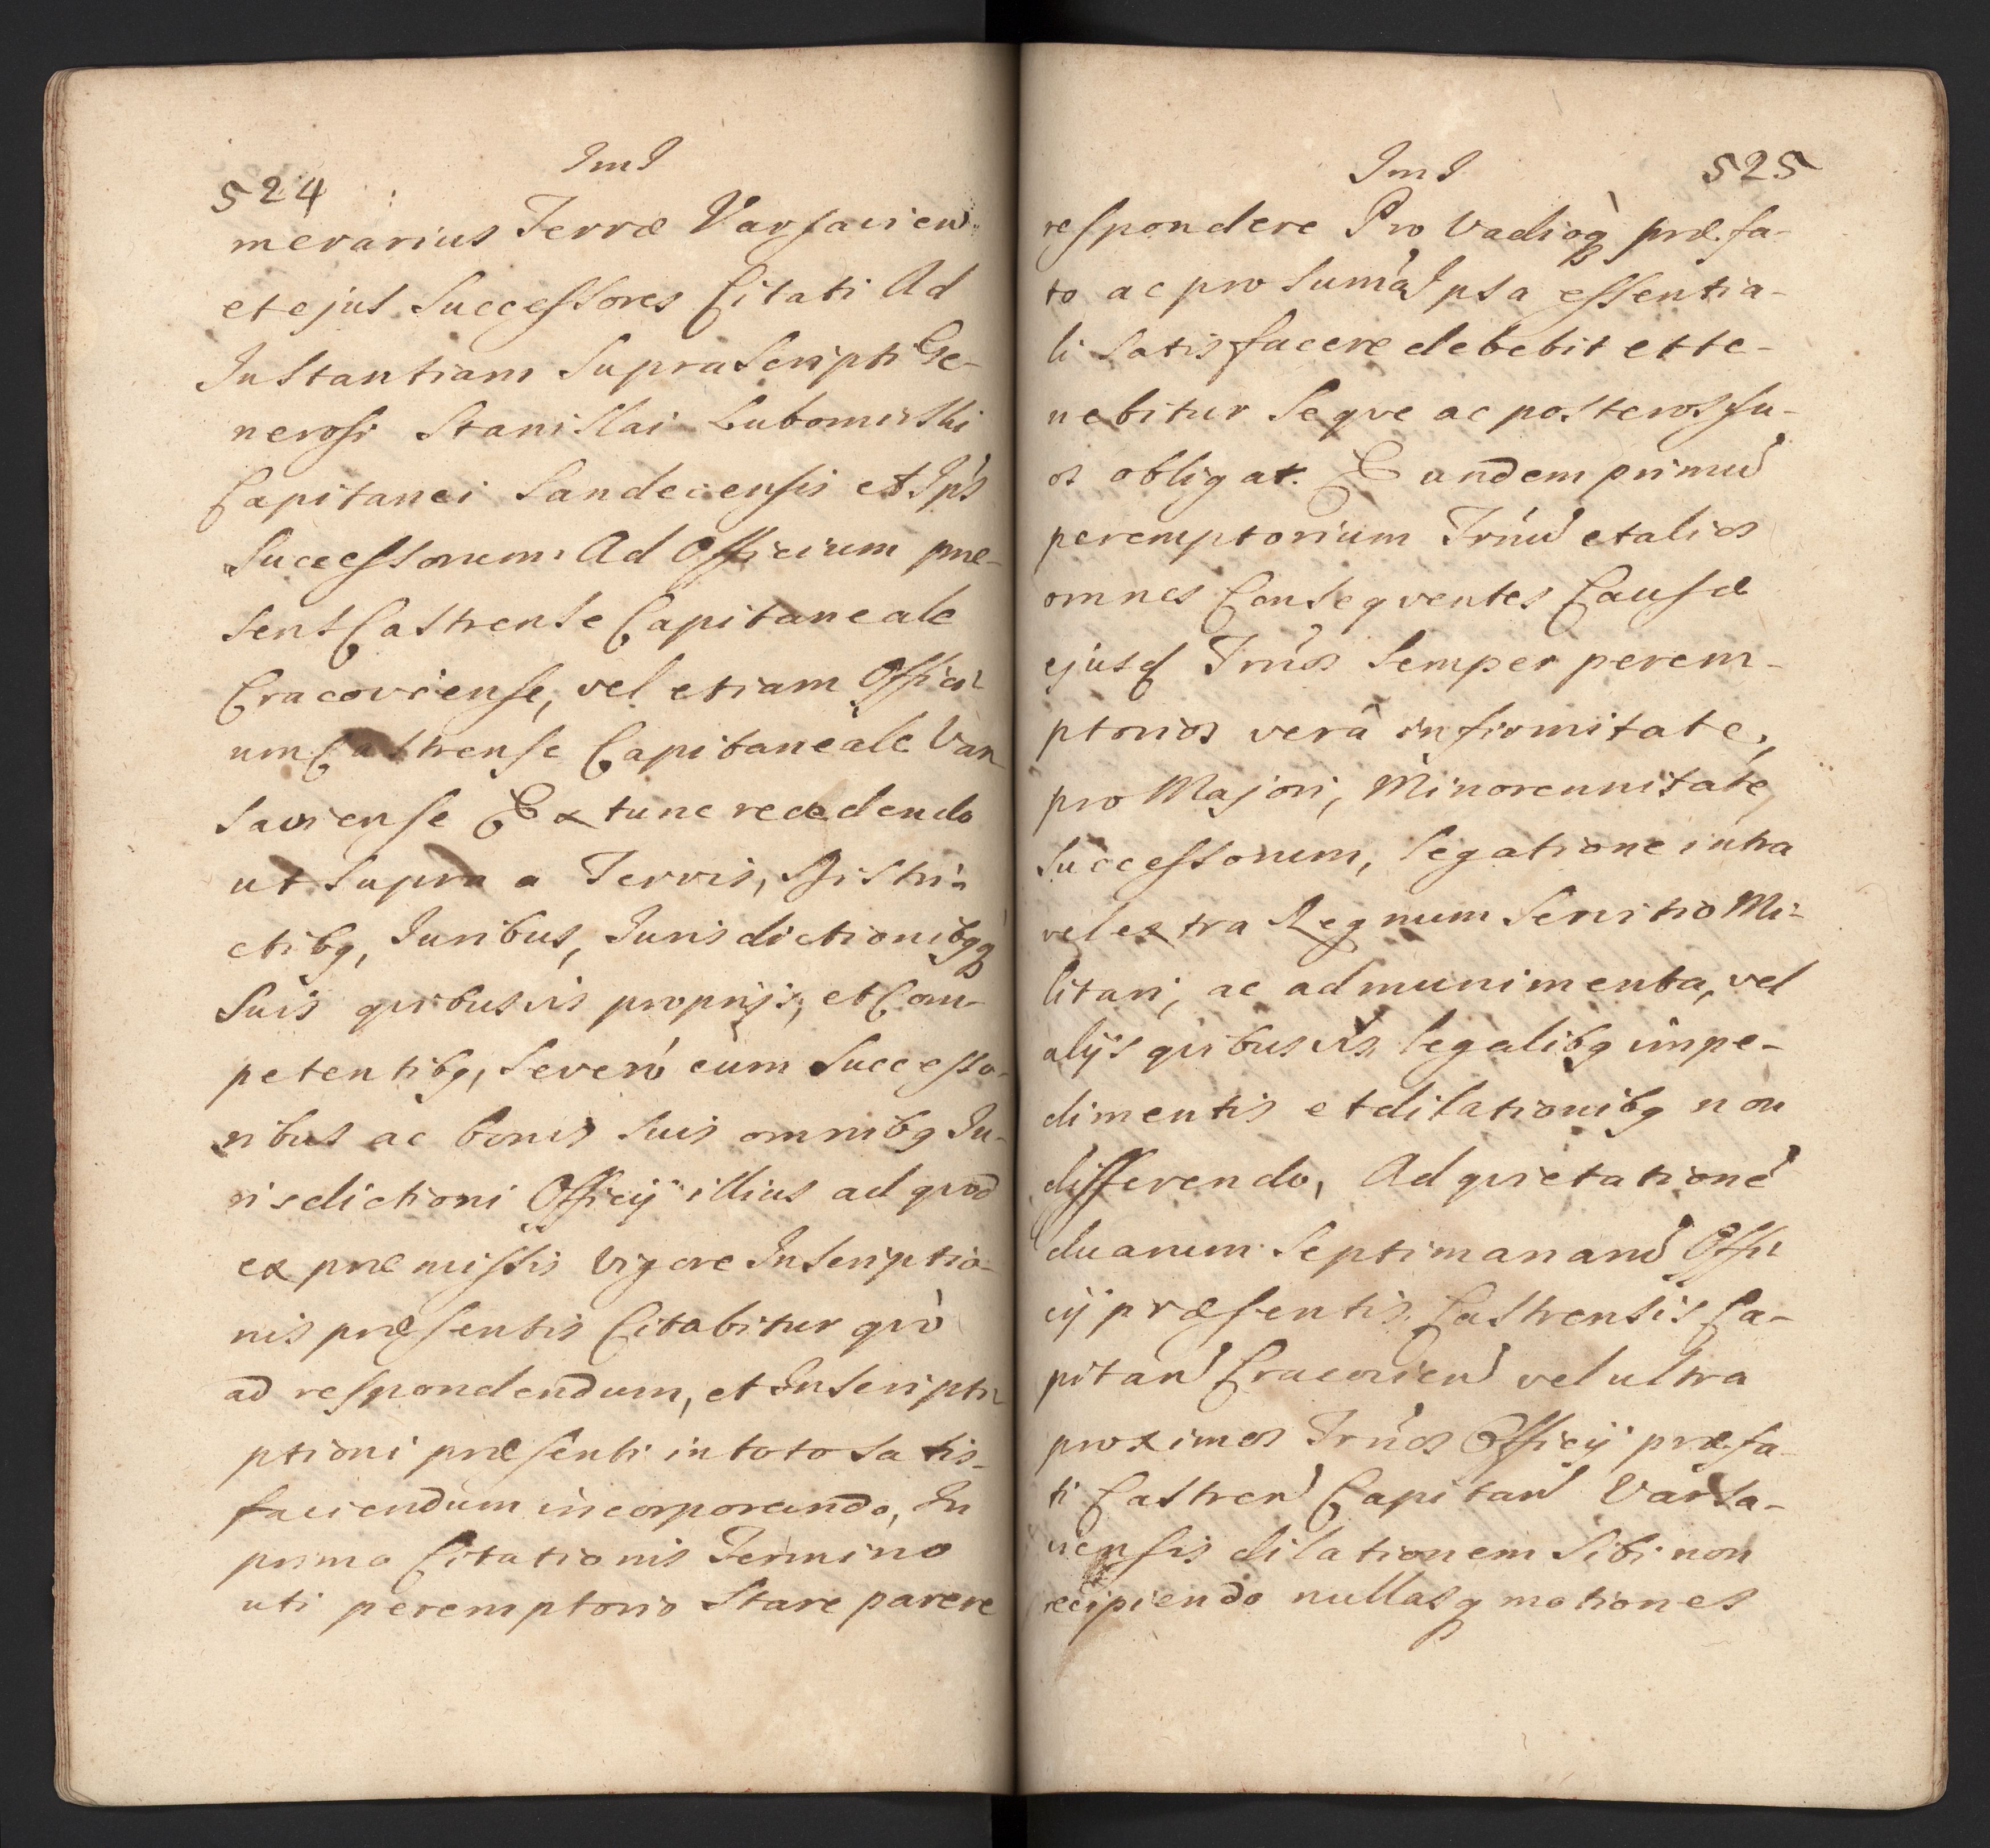 524
JmJ
merarius Terræ Varsavien:
et ejus Successores Citati Ad
Instantiam SupraScripti Ge-
nerosi Stanislai Lubomirski
Capitanei Sandecensis et Ips
Successorum: Ad Officium præ-
sens Castrense Capitaneale
Cracoviense, vel etiam Offici-
um Castrense Capitaneale Var
saviense Ex tunc recedendo
ut Supra a Terris, Distri-
ctibq, Juribus, Jurisdictionibqq
Suis quibusvis proprijs, et Com-
petentibq, Severó cum Successo-
ribus ac bonis suis omnibq Ju-
risdictioni Officij illius ad qvod
ex præmissis Vigore Inscriptio-
nis præsentis Citabitur qvò
ad respondendum, et Inscripti-
ptioni præsenti in toto satis-
faciendum incorporando, In
primo Citationis Termino
uti peremptorio Stare parere
JmJ
525
respondere Pro Vadioq præfa-
to ac pro Sumá Ipsa essentia-
li satisfacere debebit et te-
nebitur Seqve ac posteros su-
os obligat. Eundem primu
peremptorium Trnú et alios
omnes Conseqventes Causæ
ejusd Trnós Semper perem-
ptorios verâ infirmitate,
pro Majori, Minorennitate,
Successorum, legatione intra
vel extra Regnum Servitio Mi-
litari, ac ad munimenta, vel
alijs quibusvis legalibq impe-
dimentis et dilationibq non
differendo, Ad qvietatione
duarum Septimanaru Offi
cij præsentis Castrensis Ca-
pitan Cracovien vel ultra
proximos Trnós Officij præfa-
ti Castren Capitan Varsa-
viensis dilationem Sibi non
recipiendo nullasq motiones